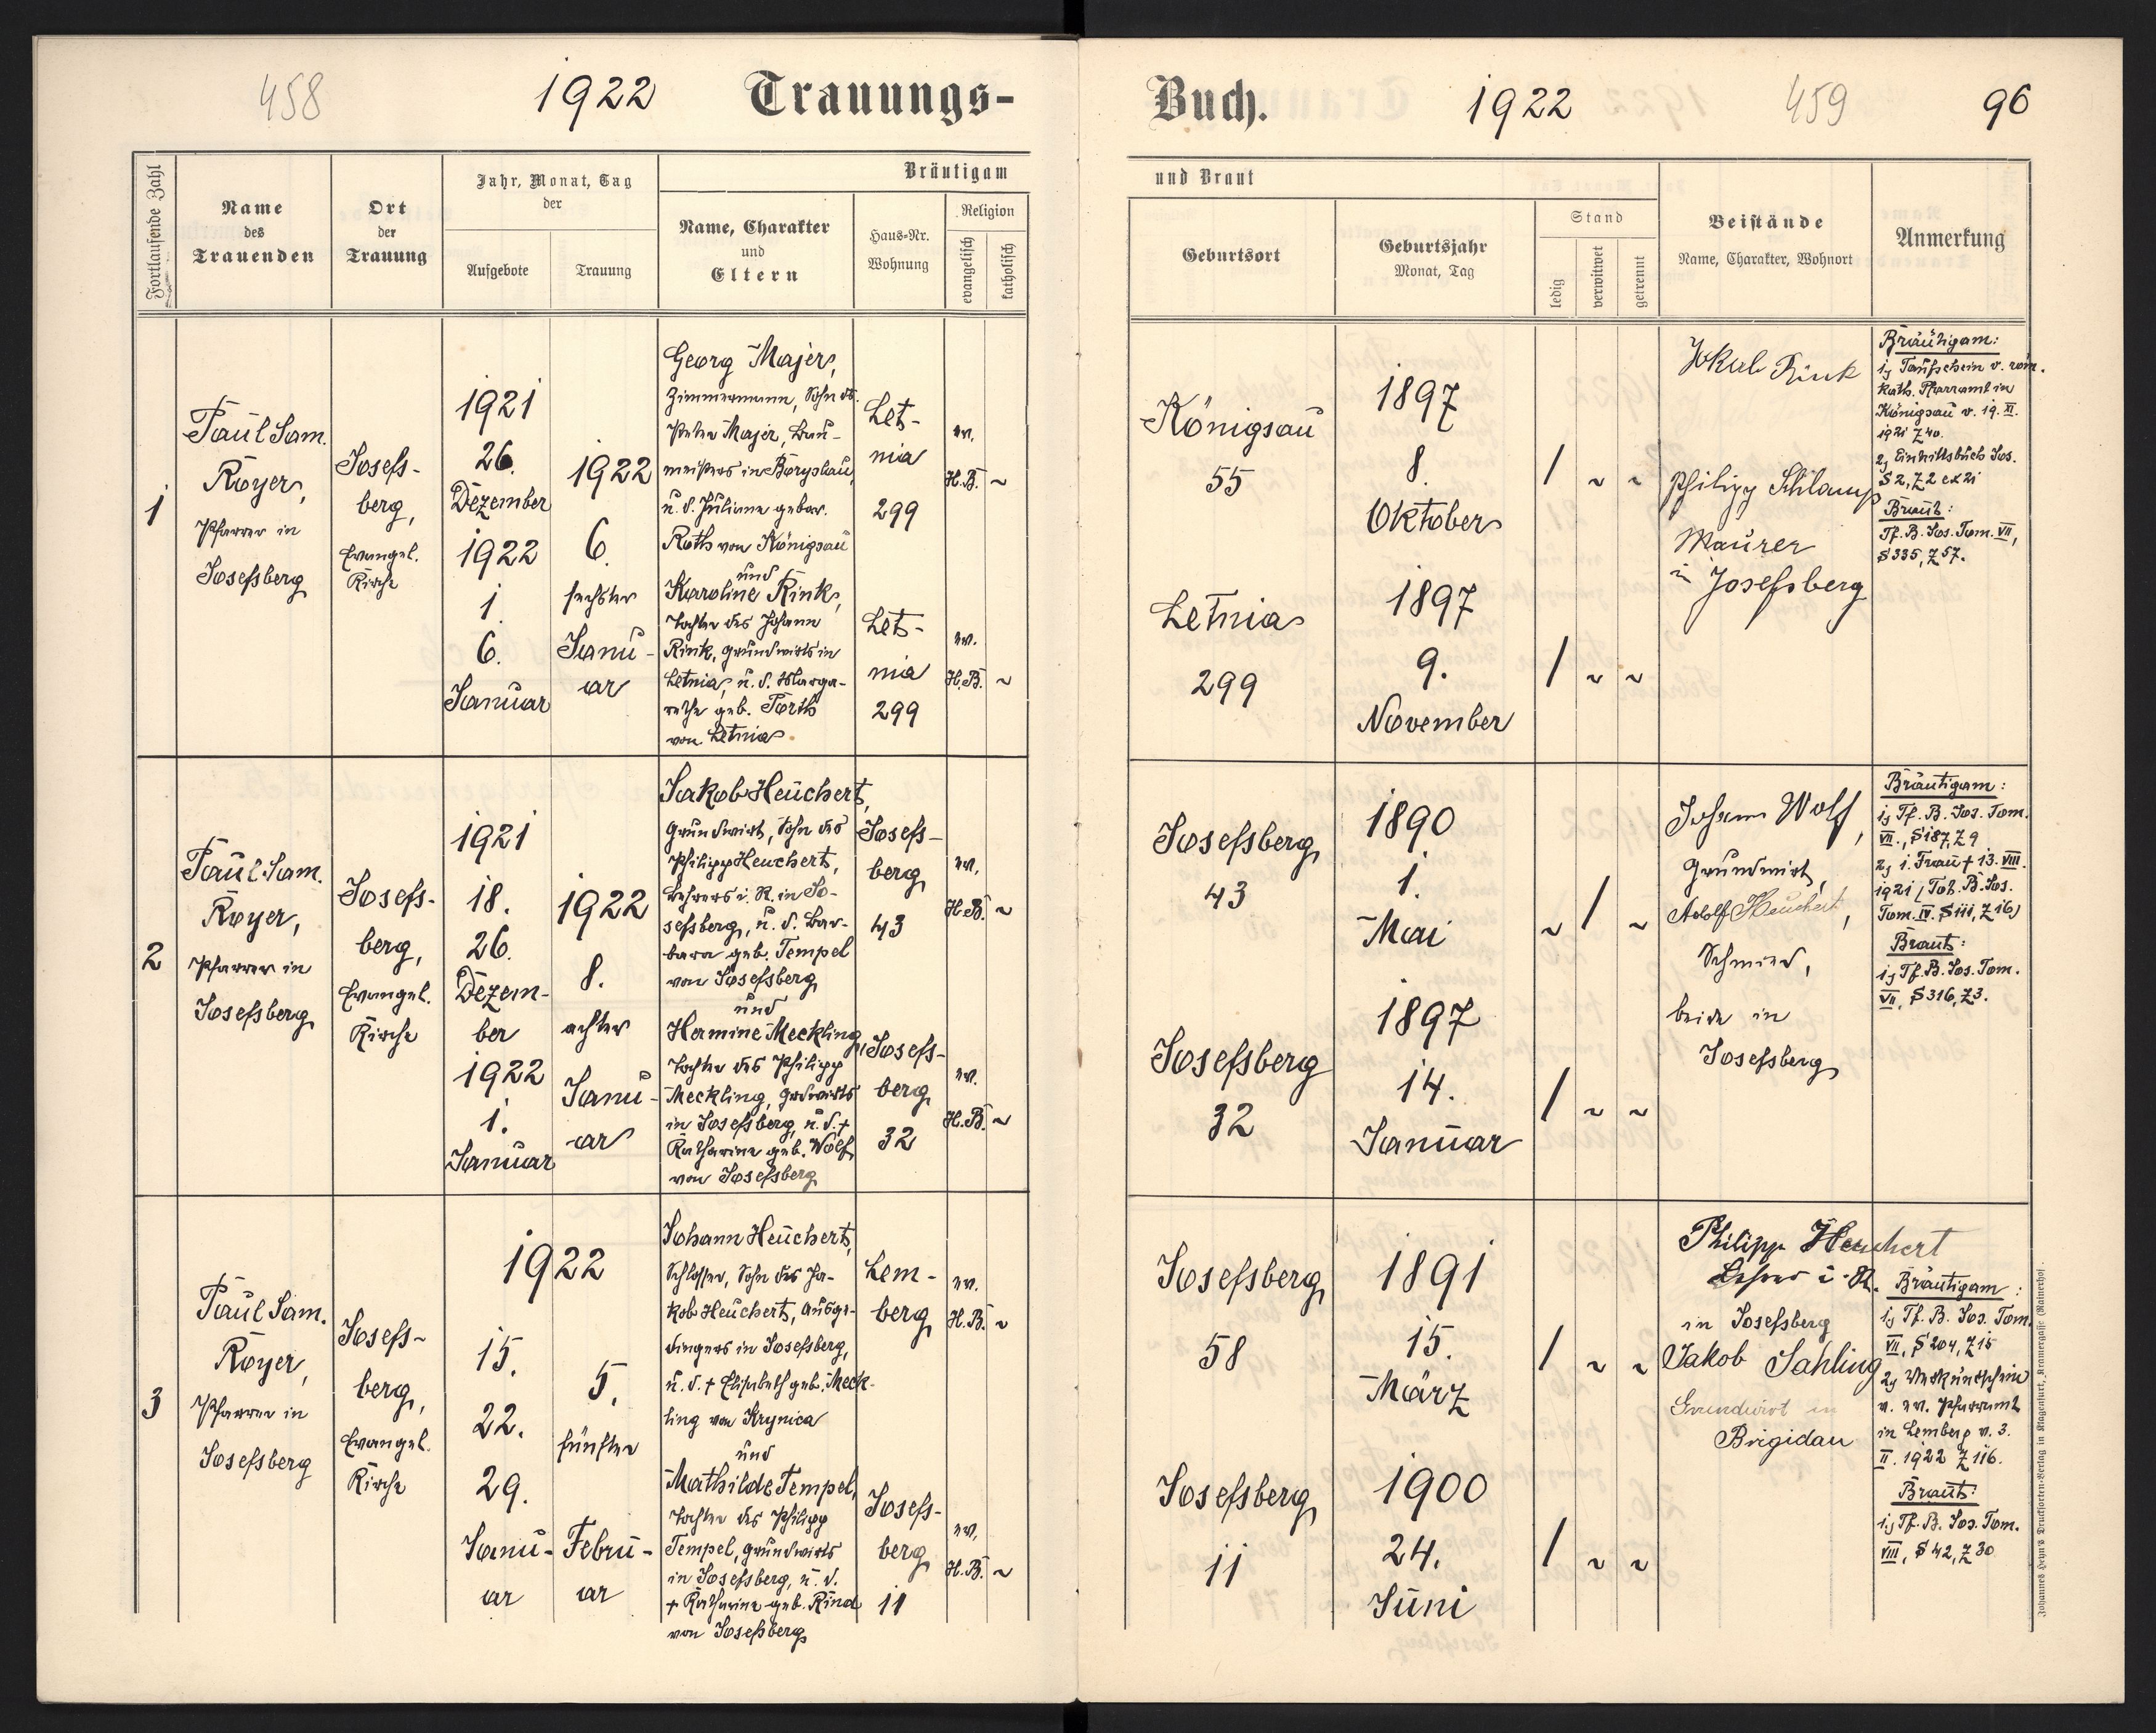 458
1922
Trauungs-
Fortlaufende Zahl
Name
des
Trauenden
Ort
der
Trauung
Jahr, Monat, Tag
der
Aufgebote
Trauung
Bräutigam
Name, Charakter
und
Eltern
Haus-Nr.
Wohnung
Religion
evangelisch
katholisch
1
Paul Sam.
Royer,
Pfarrer in
Josefsberg
Josefs-
berg,
Evangel.
Kirche
1921
26.
Dezember
1922
1.
6.
Januar
1922
6.
sechster
Janu-
ar
Georg Majer,
Zimmermann, Sohn ds.
Peter Majer, Bau-
meisters in Boryslau,
u. d. Juliane gebor.
Roth von Königsau
und
Karoline Rink,
Tochter des Johann
Rink, Grundwirts in
Letnia, u. d. Marga-
rethe geb. Forth
von Letnia
Let-
nia
299
Let-
nia
299
ev.
H.B. ~
ev.
H.B. ~
2
Paul Sam.
Royer,
Pfarrer in
Josefsberg
Josefs-
berg,
Evangel.
Kirche
1921
18.
26.
Dezem-
ber
1922
1.
Januar
1922
8.
achter
Janu-
ar
Jakob Heuchert,
Grundwirt, Sohn des
Philipp Heuchert,
Lehrers i. R. in Jo-
sefsberg, u. d. Bar-
bara geb. Tempel
von Josefsberg
und
Hermine Meckling,
Tochter des Philipp
Meckling, Grdwirts
in Josefsberg, u. d. +
Katharina geb. Wolf
von Josefsberg
Josefs-
berg
43
Josefs-
berg
32
ev.
H.B. ~
ev.
H.B. ~
3
Paul Sam.
Royer,
Pfarrer in
Josefsberg
Josefs-
berg,
Evangel.
Kirche
1922
15.
22.
29.
Janu-
ar
5.
fünfter
Febru-
ar
Johann Heuchert,
Schlosser, Sohn des Ja-
kob Heuchert, Ausge-
dingers in Josefsberg,
u. d. + Elisabeth geb. Meck-
ling von Krynica
und
Mathilde Tempel,
Tochter des Philipp
Tempel, Grundwirts
in Josefsberg, u. d.
+ Katharina geb. Rind
von Josefsberg
Lem-
berg
Josefs-
berg
11
ev.
H.B. ~
ev.
H.B. ~
Buch.
1922
459
96
und Braut
Geburtsort
Geburtsjahr
Monat, Tag
Stand
ledig
verwitwet
getrennt
Beistände
Name, Charakter, Wohnort
Anmerkung
Königsau
55
1897
8.
Oktober
/ ~ ~
Letnia
299
1897
9.
November
/ ~ ~
Jakob Rink
Philipp Schlamp
Maurer
in Josefsberg
Bräutigam:
1, Taufschein v. röm.
kath. Pfarramt in
Königsau v. 19. XI.
1921 Z 40.
2, Eintrittsbuch Jos.
S 2, Z 2 ex 21
Braut:
Tf. B. Jos. Tom. VII,
S 335, Z 57.
Josefsberg
43
1890
1.
Mai
~ / ~
Josefsberg
32
1897
14.
Januar
/ ~ ~
Johann Wolf,
Grundwirt,
Adolf Heuchert,
Schmied,
beide in
Josefsberg
Bräutigam:
1, Tf. B. Jos. Tom.
VII., S 187, Z 9
2, 1. Frau + 13. VIII.
1921 (Tob. B. Jos.
Tom. IV. S 111, Z 16)
Braut:
1, Tf. B. Jos. Tom.
VII, S 316, Z 3.
Josefsberg
58
1891
15.
März
/ ~ ~
Josefsberg
11
1900
24.
Juni
/ ~ ~
Philipp Heuchert
Lehrer i. R.
in Josefsberg
Jakob Sahling
Grundwirt in
Brigidau
Bräutigam:
1, Tf. B. Jos. Tom.
VII, S 204, Z 15
2, Verkündschein
v. ev. Pfarramt
in Lemberg v. 3.
II. 1922 Z 116.
Braut:
1, Tf. B. Jos. Tom.
VIII, S 42, Z 30
Johannes Heyn's Drucksorten-Verlag in Klagenfurt, Kramergasse (Rainerhof).